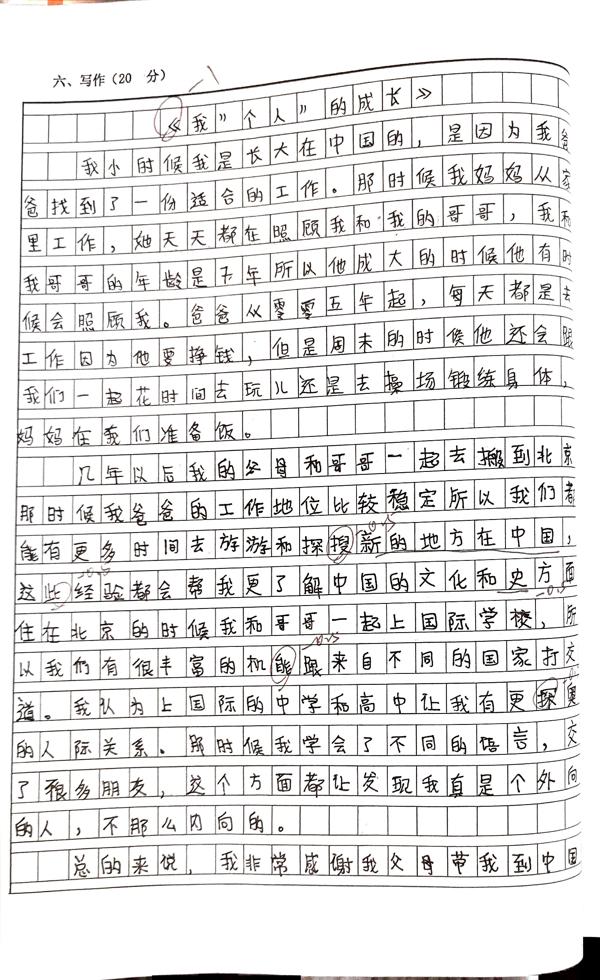 六、写作（20 分）
-1
《我”个人”的成长》
我小时候我是长大在中国的，是因为我爸
爸找到了一份适合的工作。那时候我妈妈从家
里工作，她天天都在照顾我和我的哥哥，我和
我哥哥的年龄是7年所以他成大的时候他有时
候会照顾我。爸爸从零零五年起，每天都是去
工作因为他要挣钱，但是周末的时候他还会跟
我们一起花时间去玩儿还是去操场锻练身体，
妈妈在我们准备饭。
几年以后我的父母和哥哥一起去搬到北京
那时候我爸爸的工作地位比较稳定所以我们都
能有更多时间去放游和探搜新的地方在中国，
这些经验都会帮我更了解中国的文化和史方面
住在北京的时候我和哥哥一起上国际学校，所
以我们有很丰富的机能跟来自不同的国家打交
道。我认为上国际的中学和高中让我有更探奥
的人际关系。那时候我学会了不同的语言，交
了很多朋友，这个方面都让发现我真是个外向
的人，不那么内向的。
总的来说，我非常感谢我父母带我到中国